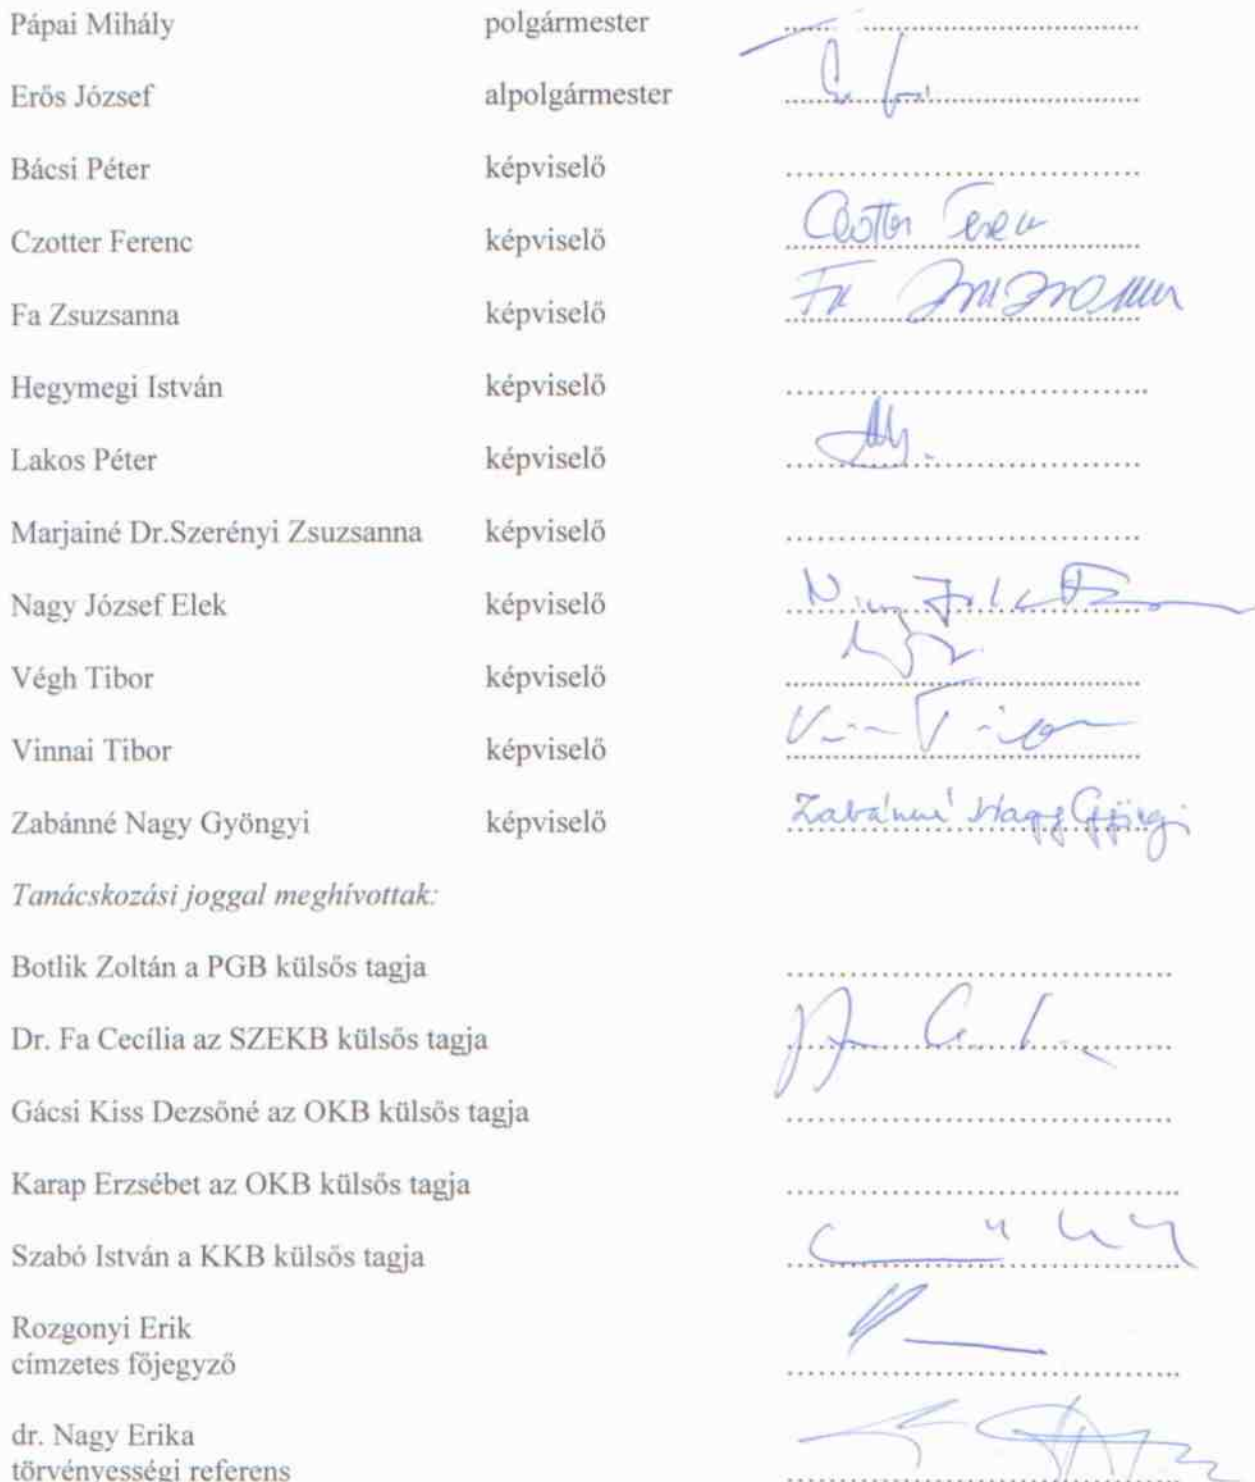 Pápai Mihály polgármester ..............................
Erős József alpolgármester ..............................
Bácsi Péter képviselő ..............................
Czotter Ferenc képviselő Czotter Ferenc
Fa Zsuzsanna képviselő Fa Zsuzsanna
Hegymegi István képviselő ..............................
Lakos Péter képviselő ..............................
Marjainé Dr.Szerényi Zsuzsanna képviselő ..............................
Nagy József Elek képviselő ..............................
Végh Tibor képviselő ..............................
Vinnai Tibor képviselő ..............................
Zabánné Nagy Gyöngyi képviselő Zabánné Nagy Gyöngyi
Tanácskozási joggal meghívottak:
Botlik Zoltán a PGB külsős tagja ..............................
Dr. Fa Cecília az SZEKB külsős tagja ..............................
Gácsi Kiss Dezsőné az OKB külsős tagja ..............................
Karap Erzsébet az OKB külsős tagja ..............................
Szabó István a KKB külsős tagja ..............................
Rozgonyi Erik
címzetes főjegyző ..............................
dr. Nagy Erika
törvényességi referens ..............................